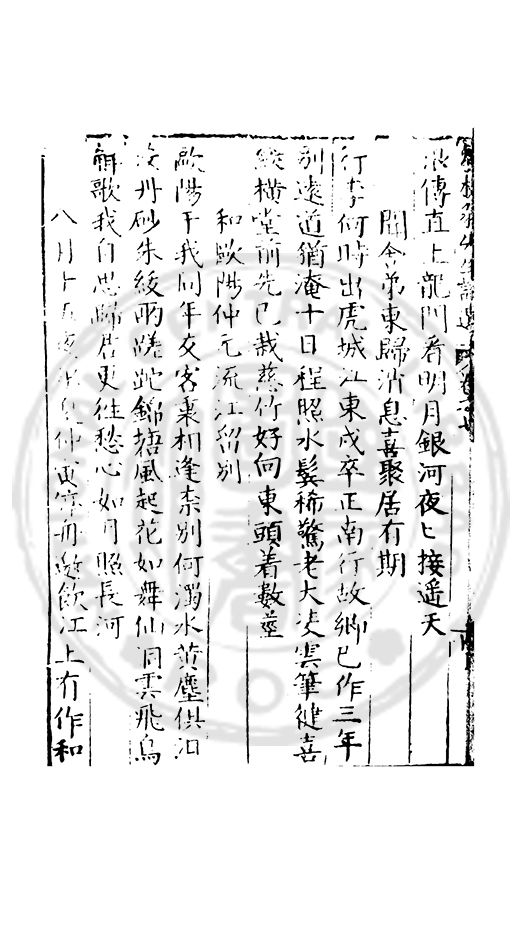 傳直上龍門看明月銀河夜匕接遥天
聞舍弟東歸消息喜聚居有期
行李何時出虎城江東戍卒正南行故鄉已作三年
别遠道猶淹十日程照水鬓稀驚老大凌雲筆健喜
縱横堂前先已栽慈竹好向東頭着數莖
和歐陽仲元流江留别
歐陽于我同年友客裏相逢柰别何濁水黄塵俱汩
丹砂朱綬兩蹉跎錦塘風起花如舞仙洞雲飛鳥
歌我自思歸君更往愁心如月照長河
八月十五夜 仲寅 舟邀飲江上有作和